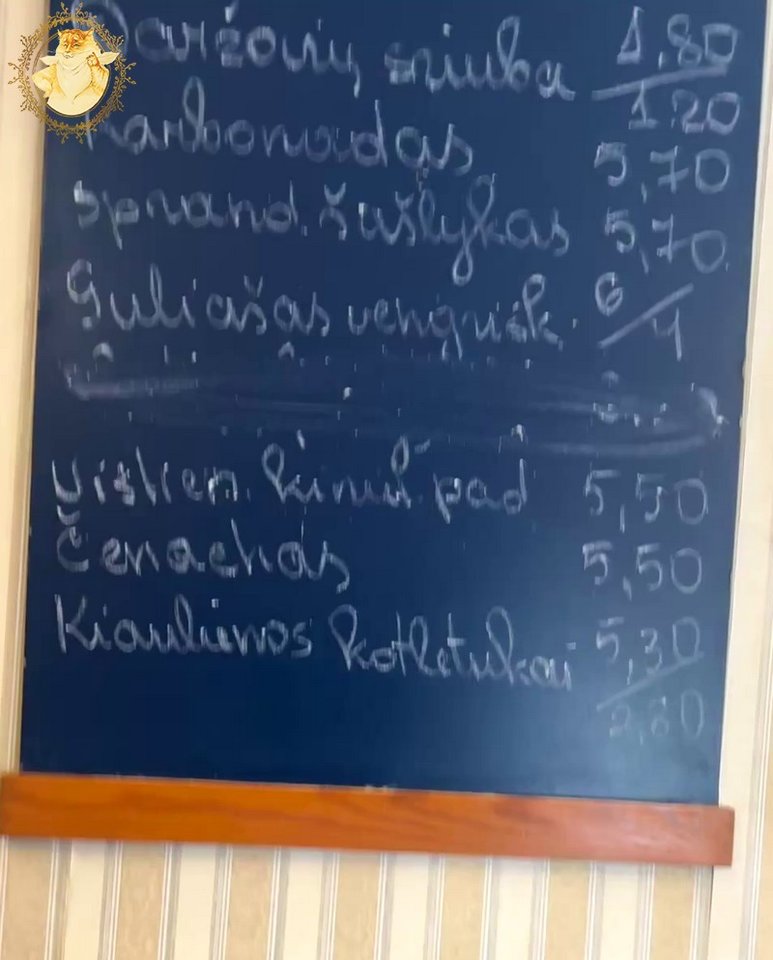 Daržovių sriuba 1.80
1.20
Karbonadas 5,70
Sprand. šašlykas 5,70
Guliašas vengrišk. 6/4
Vištien. kinul pad 5,50
Čenachas 5,50
Kiaulienos kotletukai 5,30